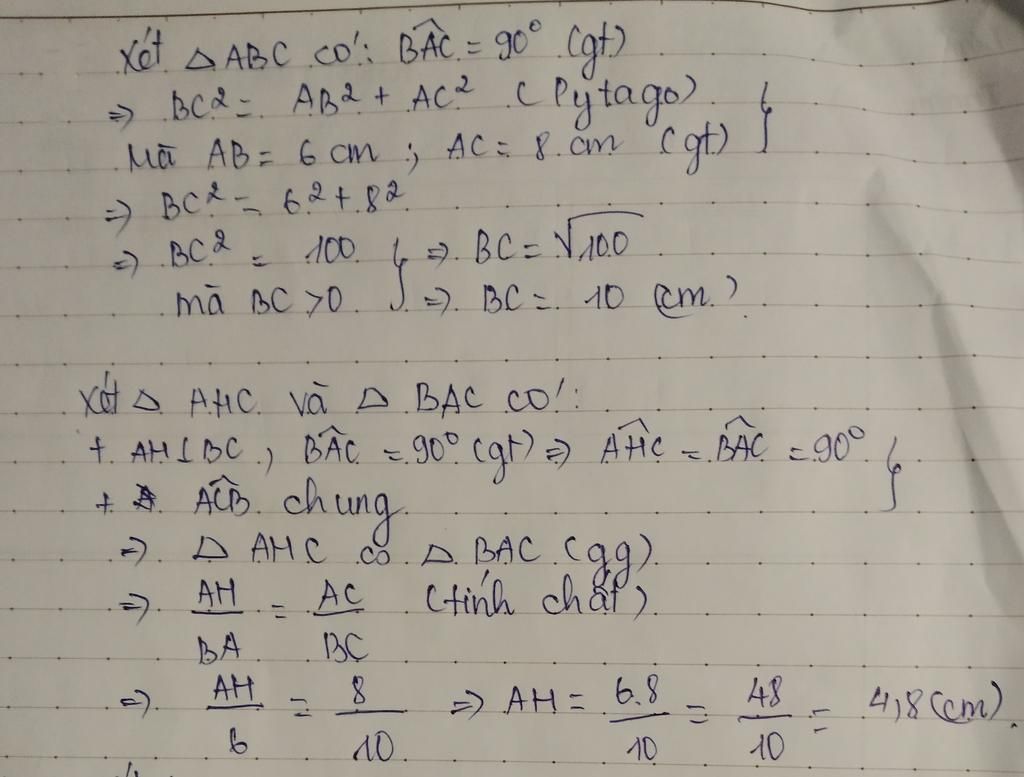 Xét △ ABC có: BÂC = 90° (gt)
⇒ BC² = AB² + AC² (Pytago) }
Mà AB = 6 cm ; AC = 8 cm (gt)
⇒ BC² = 6² + 8²
⇒ BC² = 100 } ⇒ BC = √100
mà BC > 0 ⇒ BC = 10 (cm)
Xét △ AHC và △ BAC có:
+ AH ⊥ BC, BÂC = 90° (gt) ⇒ AĤC = BÂC = 90° }
+ AĈB chung
⇒ △ AHC ∽ △ BAC (gg)
⇒ AH/BA = AC/BC (tính chất)
⇒ AH/6 = 8/10 ⇒ AH = 6.8/10 = 48/10 = 4,8 (cm).